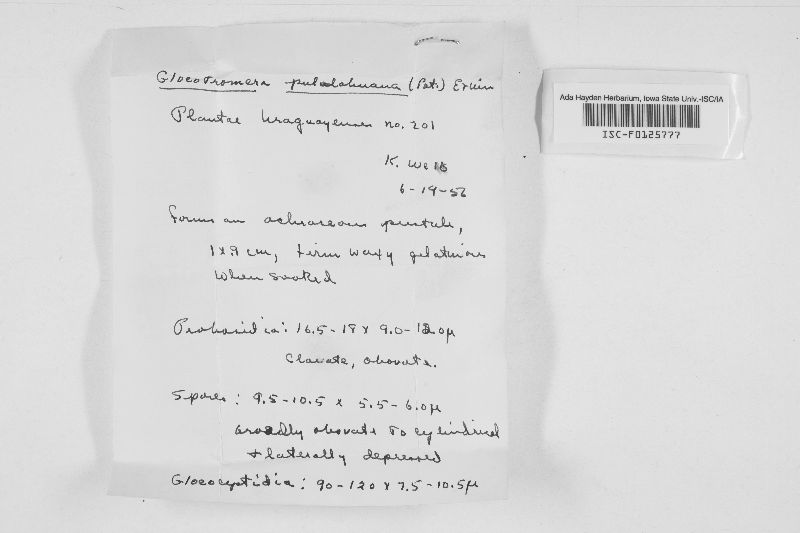 Gloeotromera pululahuana (Pat.) Ervin
Plantae Uraguayenses no. 201
K. Wells
6-19-56
forms an ochraceous pustule,
1 x .9 cm, firm waxy gelatinous
when soaked
Probasidia: 16.5-18 x 9.0-12.0µ
Clavate, obovate.
Spores: 9.5-10.5 x 5.5-6.0µ
broadly obovate to cylindrical
+ laterally depressed
Gloeocystidia: 90-120 x 7.5-10.5µ
Ada Hayden Herbarium, Iowa State Univ.-ISC/IA
ISC-F0125777